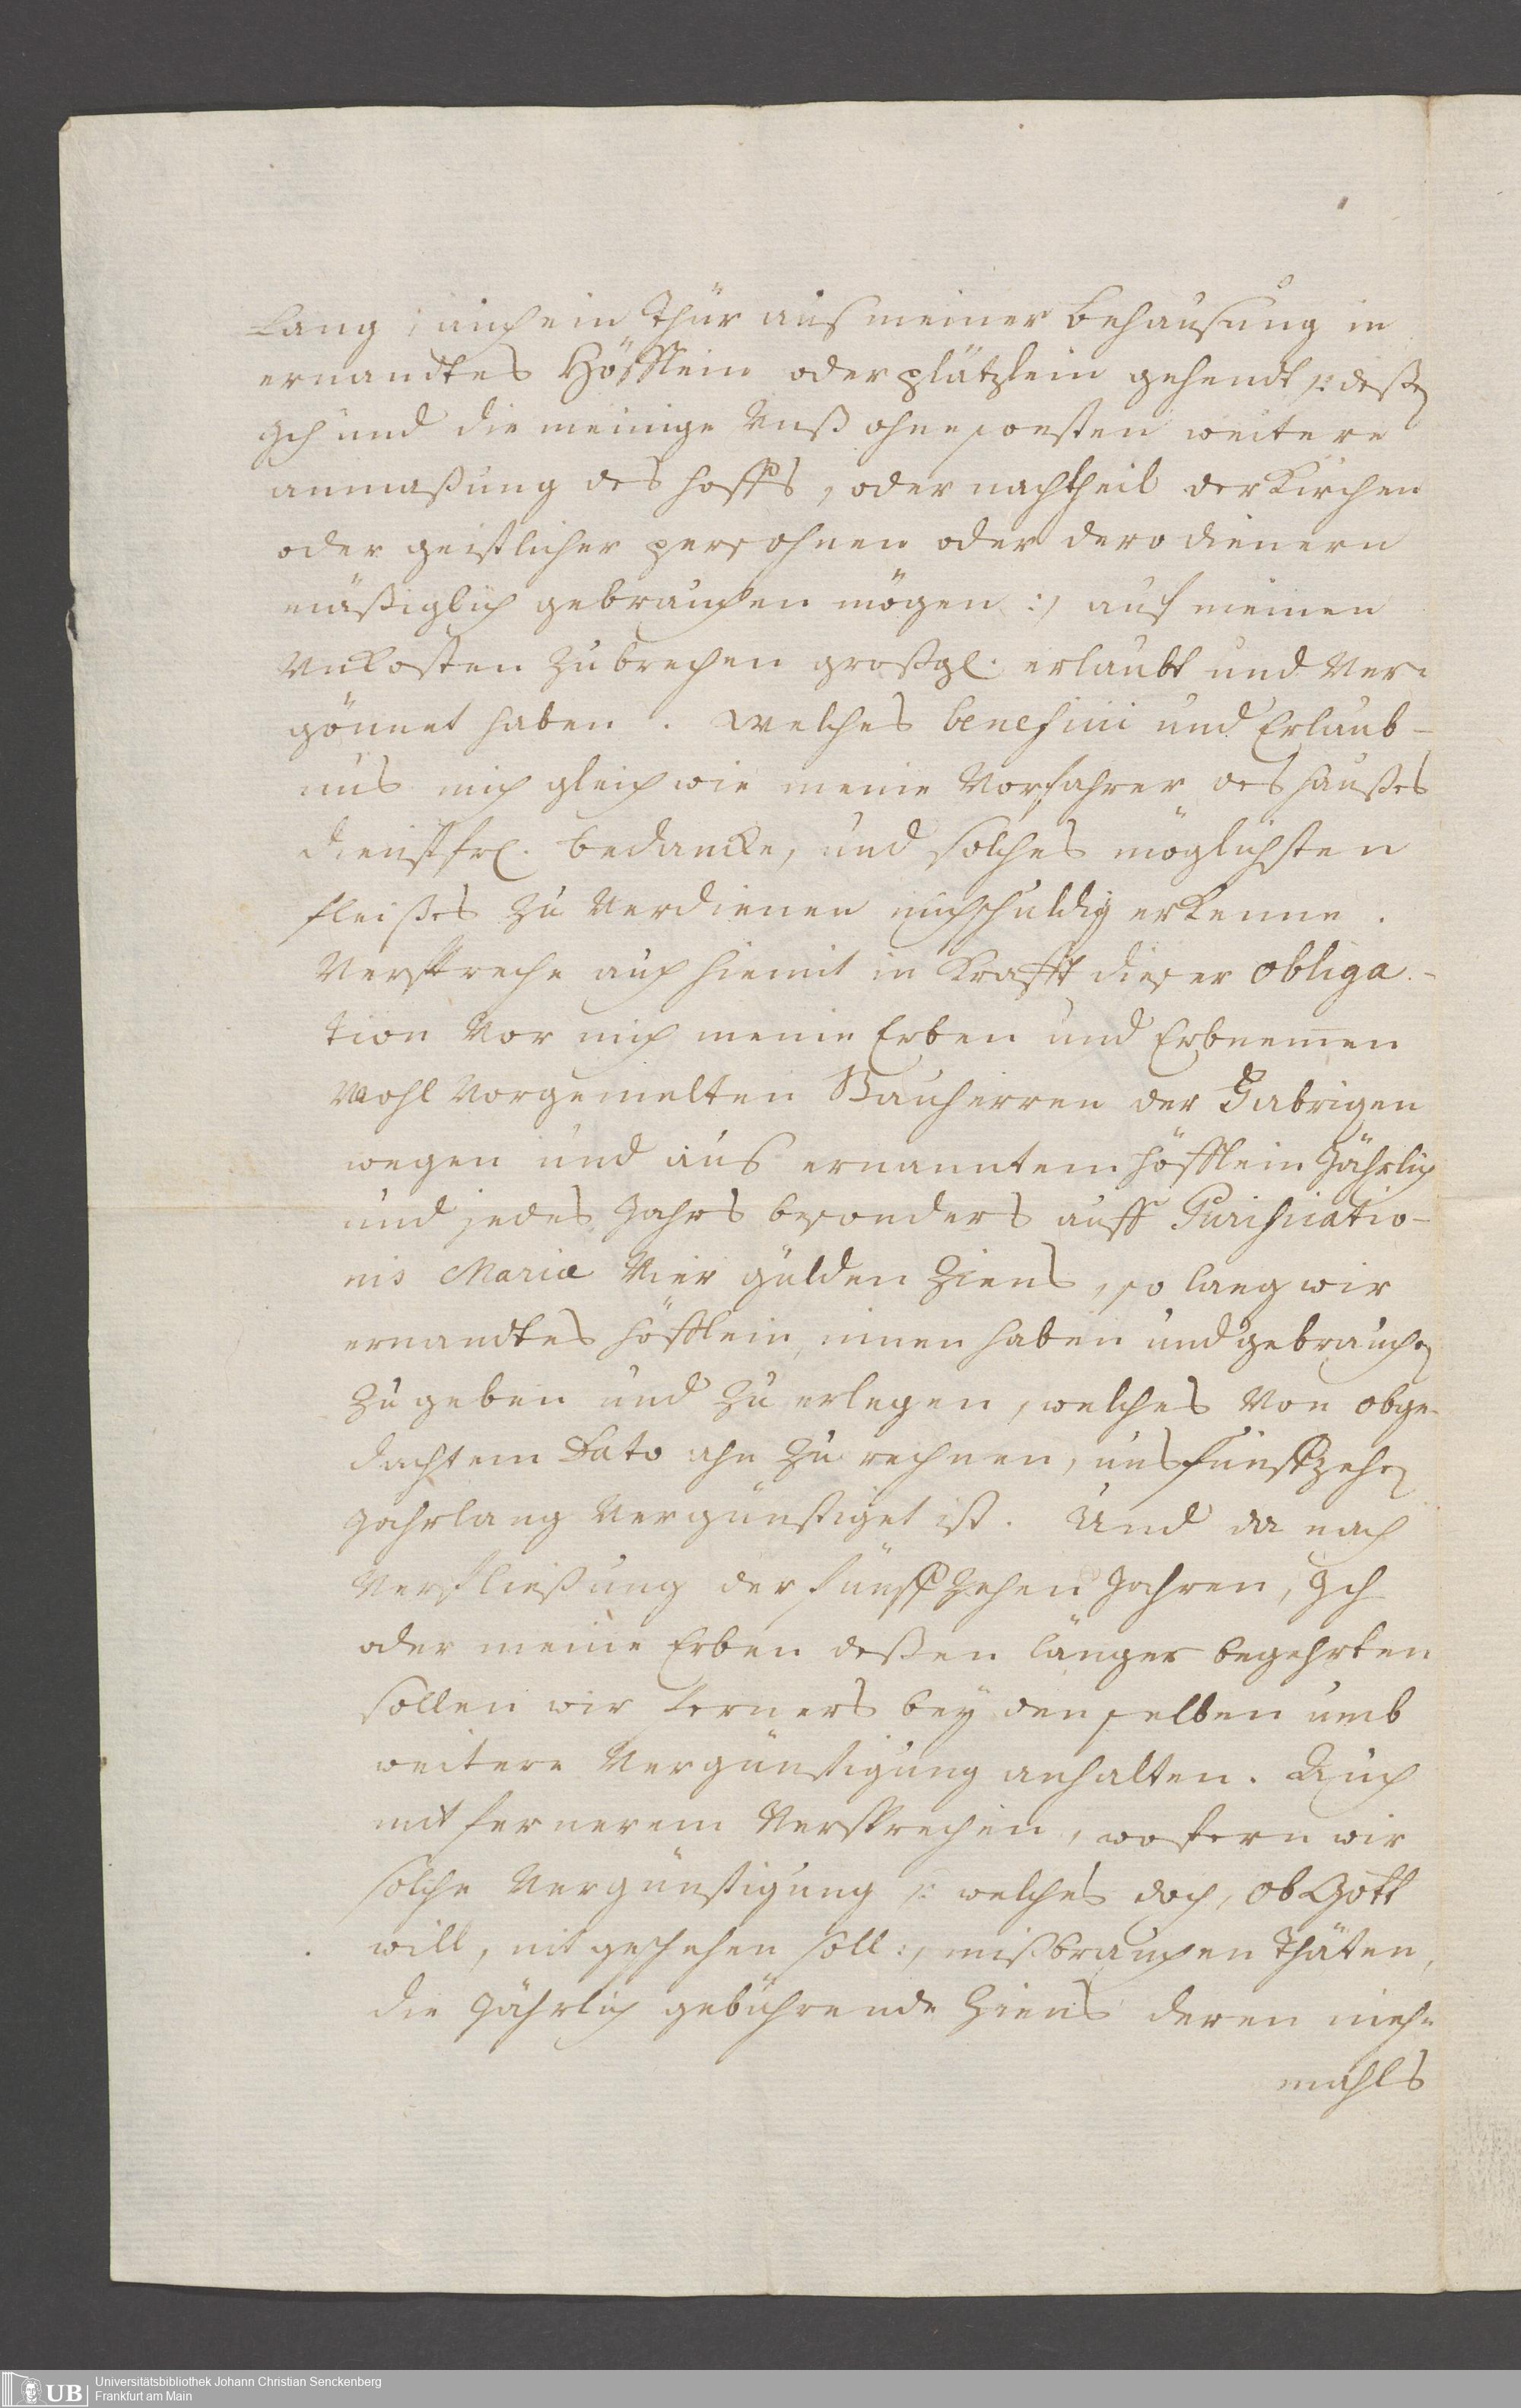 lang, auch ein Thür aus meiner behausung in
ernandtes Höfflein oder plätzlein gehendt /: deßen
Ich und die meinige ohne sonsten weitere
anmaßung des hoffs, oder nachtheil der Kirchen
oder geistlicher persohnen oder dero dienern
mäßiglich gebrauchen mögen :/ auf meinen
Unkosten zu brechen großgl. erlaubt und Ver-
gönnet haben. Welches beneficii und Erlaub-
nus mich gleich wie meine Vorfahrer des haußes
dienstfrl. bedancke, und solches möglichsten
fleißes zu Verdienen mich schuldig erkenne.
Verspreche auch hiemit in Krafft dieser obliga-
tion Vor mich meine Erben und Erbnemen
Wohl Vorgemelten Bauherren der Fabrigen
wegen und aus ernanntem höfflein Jährlich
und jedes Jahrs besonders auff Purificatio-
nis Mariæ Vier gülden Ziens, so lang wir
ernandtes höfflein, innen haben und gebrauchen
zu geben und zu erlegen, welches Von obge-
dachtem Dato ahn zu rechnen, uns fünffzehen
Jahrlang Vergünstiget ist. Und da nach
Verfließung der fünffzehen Jahren, Ich
oder meine Erben deßen länger begehrten
sollen wir ferners bey denselben umb
weitere Vergünstigung anhalten. Auch
mit fernerem Versprechen, wofern wir
solche Vergünstigung /: welches doch, ob Gott
will, nit geschehen soll :/ mißbrauchen thäten,
die Jährlich gebührende Ziens deren nieh-
mahls
Universitätsbibliothek Johann Christian Senckenberg
Frankfurt am Main
UB